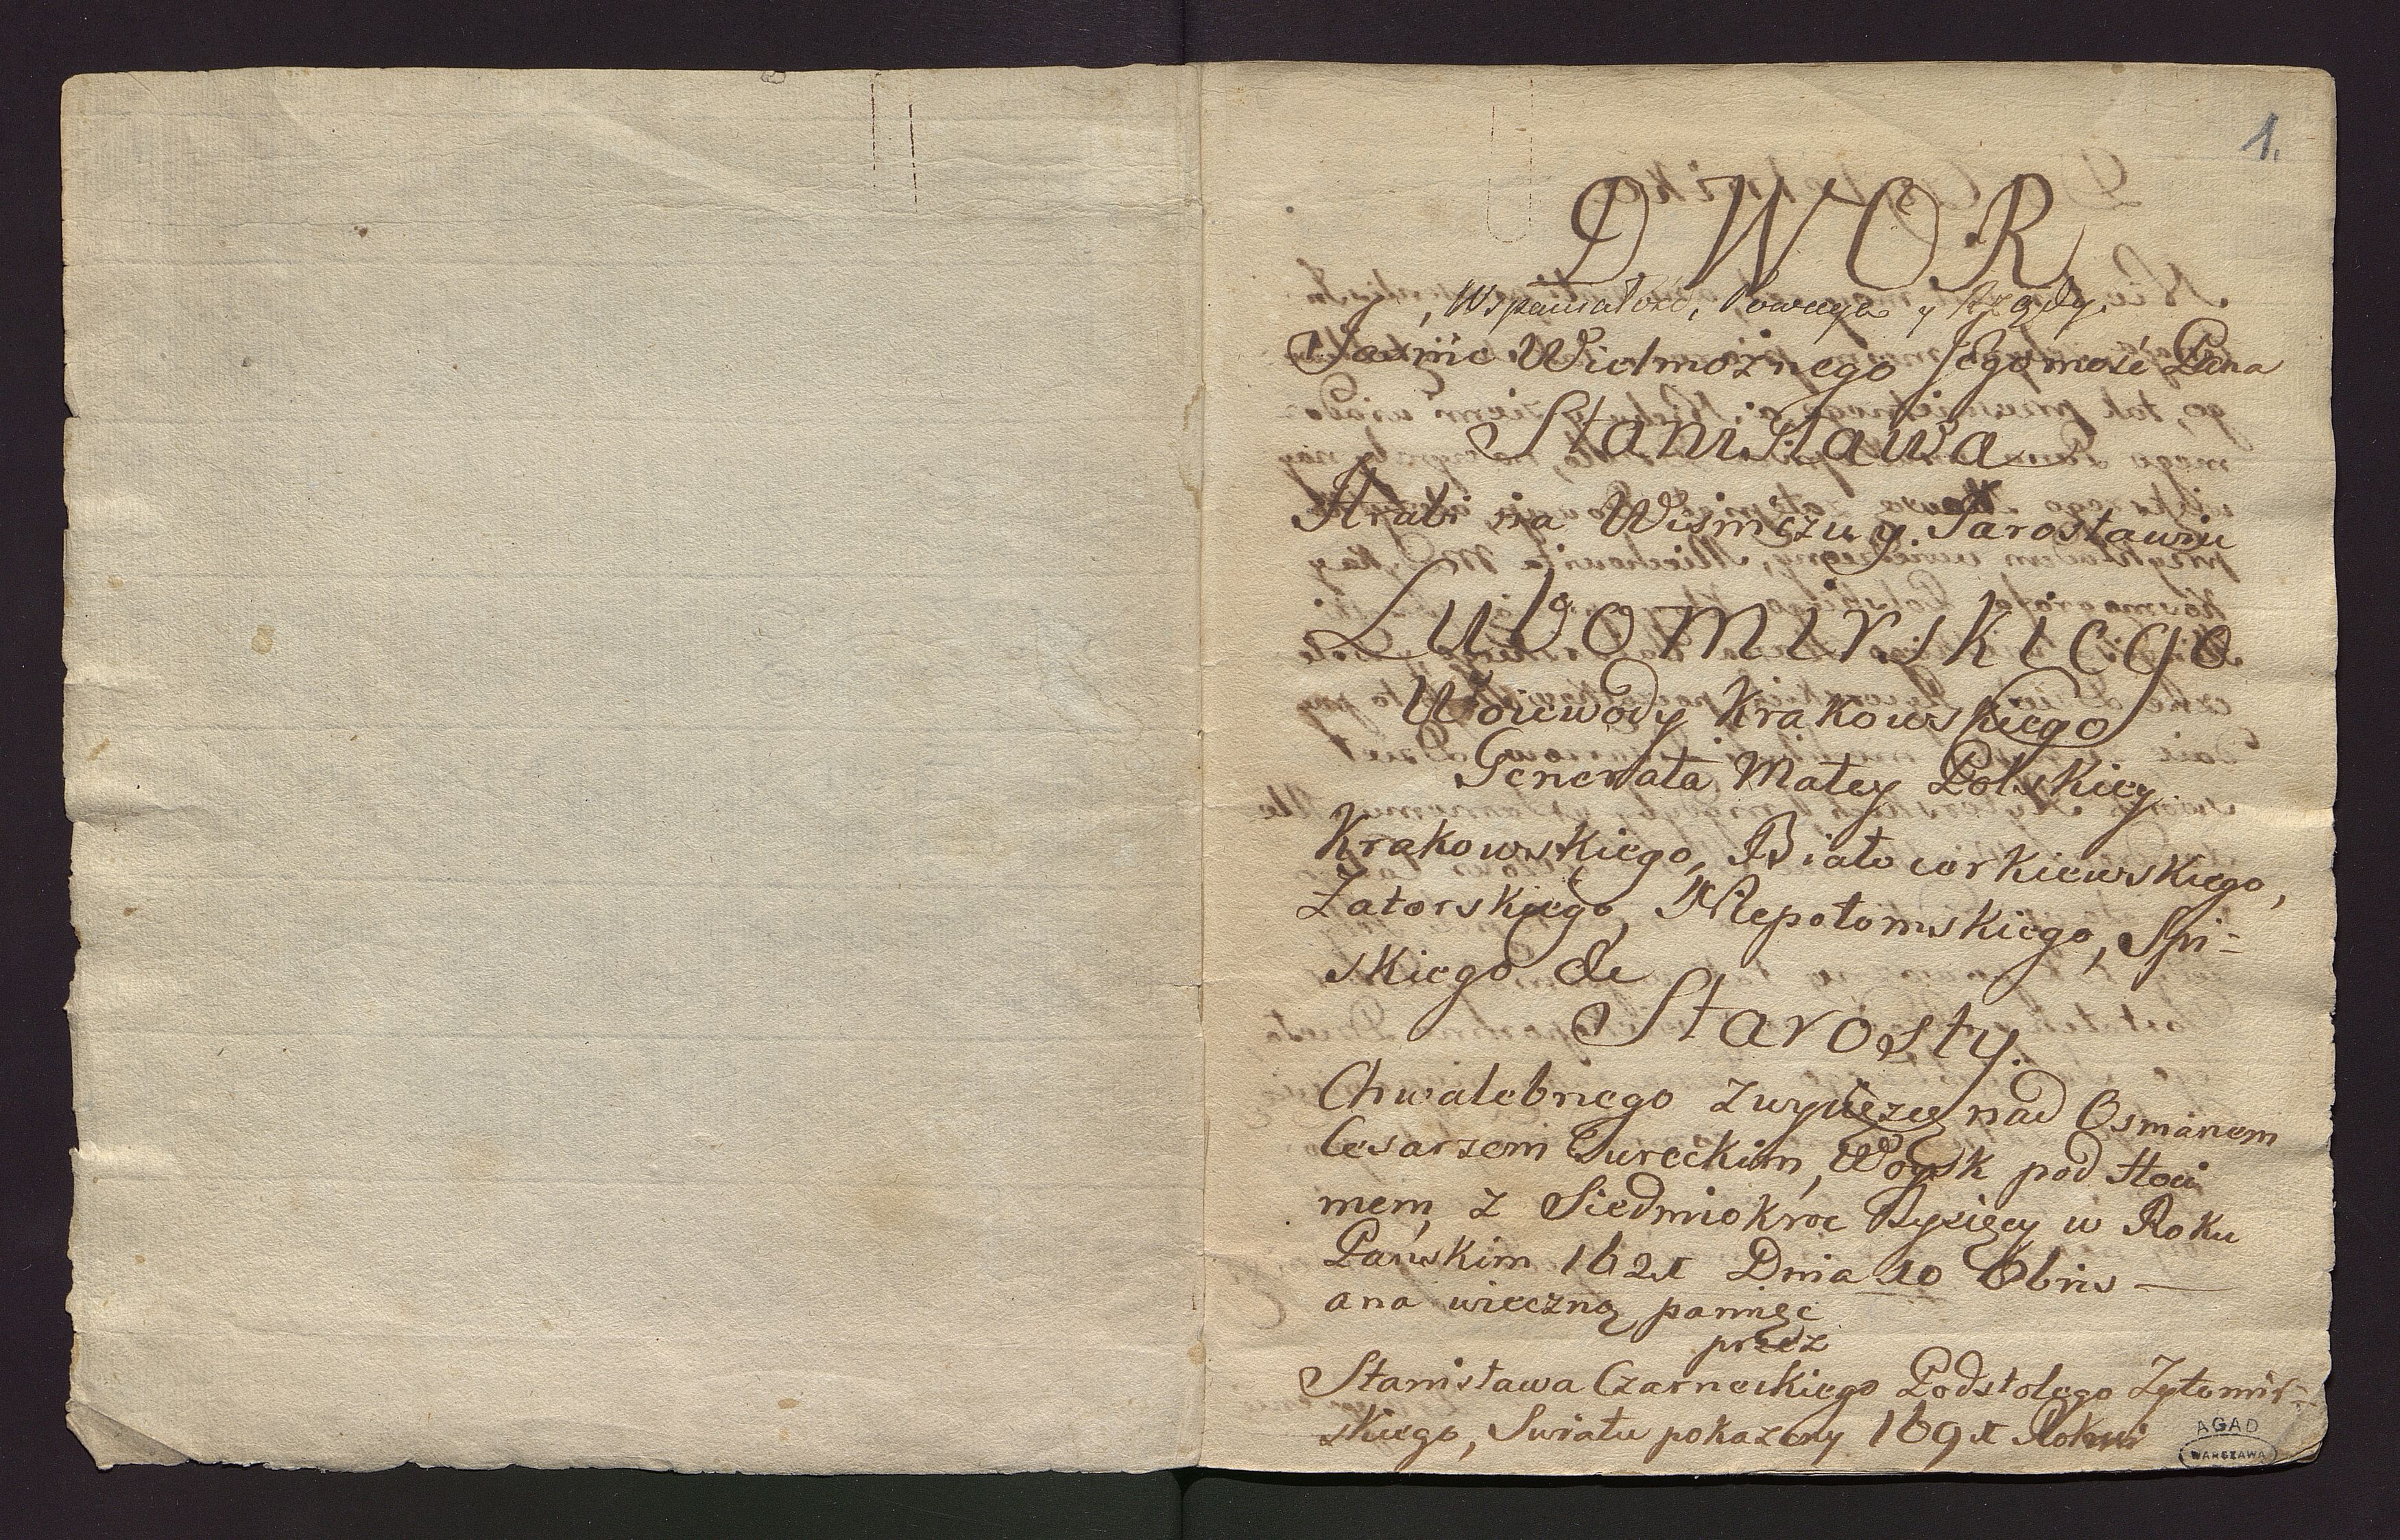 1.
DWOR
Wspaniałość, Powaga y Rządy.
Jaśnie Wielmożnego Jegomość Pana
Stanisława
Hrabi na Wiśniczu y Jarosławiu
Lubomirskiego
Woiewody Krakowskiego
Generała Małey Polskiey
Krakowskiego, Białocerkiewskiego,
Zatorskiego, Niepołomskiego, Spi=
skiego &c
Starosty.
Chwalebnego Zwyciężcę nad Osmanem
Cesarzem Tureckim, Woysk pod Hoci
mem, z Siedmiokroć Tysięcy w Roku
Pańskim 1621 Dnia 10 8bris —
ana wieczną pamięć
przez
Stanisława Czarneckiego Podstolego Zytomir=
skiego, Swiatu pokazany 1691 Roku
AGAD
WARSZAWA